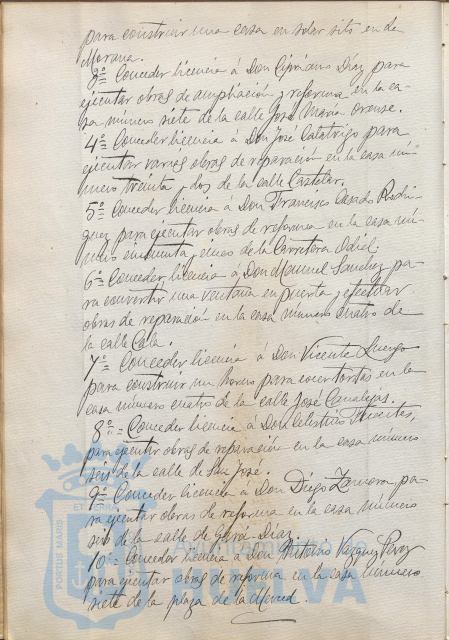 para construir una casa en solar sito en la
Morana.
3º= Conceder licencia á Don Cipriano Diaz para
ejecutar obras de ampliación y reforma en la ca-
sa número siete de la calle José Maria Orense.
4º= Conceder licencia á Don José Calatrigo para
ejecutar varias obras de reparación en la casa nú-
mero treinta y dos de la calle Castelar.
5º= Conceder licencia á Don Francisco Casado Rodri-
guez para ejecutar obras de reforma en la casa nú-
mero cincuenta y cinco de la Carretera Odiel.
6º= Conceder licencia á Don Manuel Sanchez pa-
ra convertir una ventana en puerta y efectuar
obras de reparación en la casa número cuatro de
la calle Cala.
7º= Conceder licencia á Don Vicente
para construir un horno para cocer tortas en la
casa número cuatro de la calle José Canalejas.
8º= Conceder licencia á Don Celestino
para ejecutar obras de reparación en la casa número
seis de la calle de San José.
9º= Conceder licencia á Don Diego Zamora pa-
ra ejecutar obras de reforma en la casa número
seis de la calle de Garci-Diaz.
10º= Conceder licencia á Don Antonio Vazquez Perez
para ejecutar obras de reforma en la casa número
siete de la plaza de la Merced.
PORTUS MARIS
ET TERRÆ
Ayuntamiento de
HUELVA